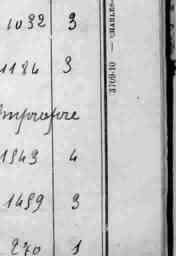 1032 3
1184 3
Impropre
1843 4
1489 3
270 1
3769-10 — CHARLES-